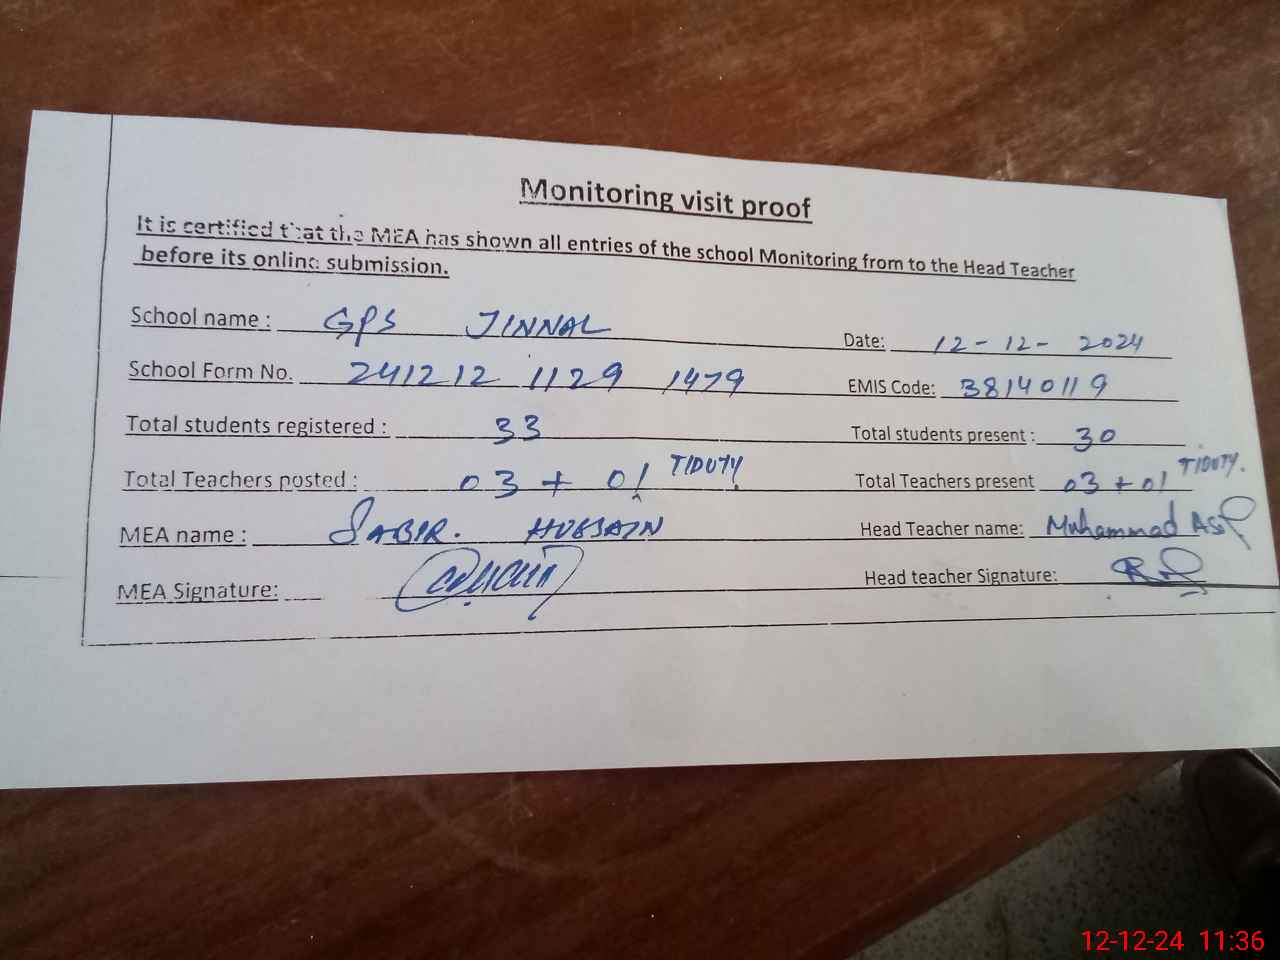 Monitoring visit proof
It is certified that the MEA has shown all entries of the school Monitoring from to the Head Teacher
before its online submission.
School name : GPS JINNAL Date: 12-12-2024
School Form No. 241212 1129 1479 EMIS Code: 38140119
Total students registered : 33 Total students present : 30
Total Teachers posted : 03 + 01 T/DUTY Total Teachers present 03 + 01 T/DUTY.
MEA name : SABIR. HUSSAIN Head Teacher name: Muhammad Asif
MEA Signature: Head teacher Signature:
12-12-24 11:36